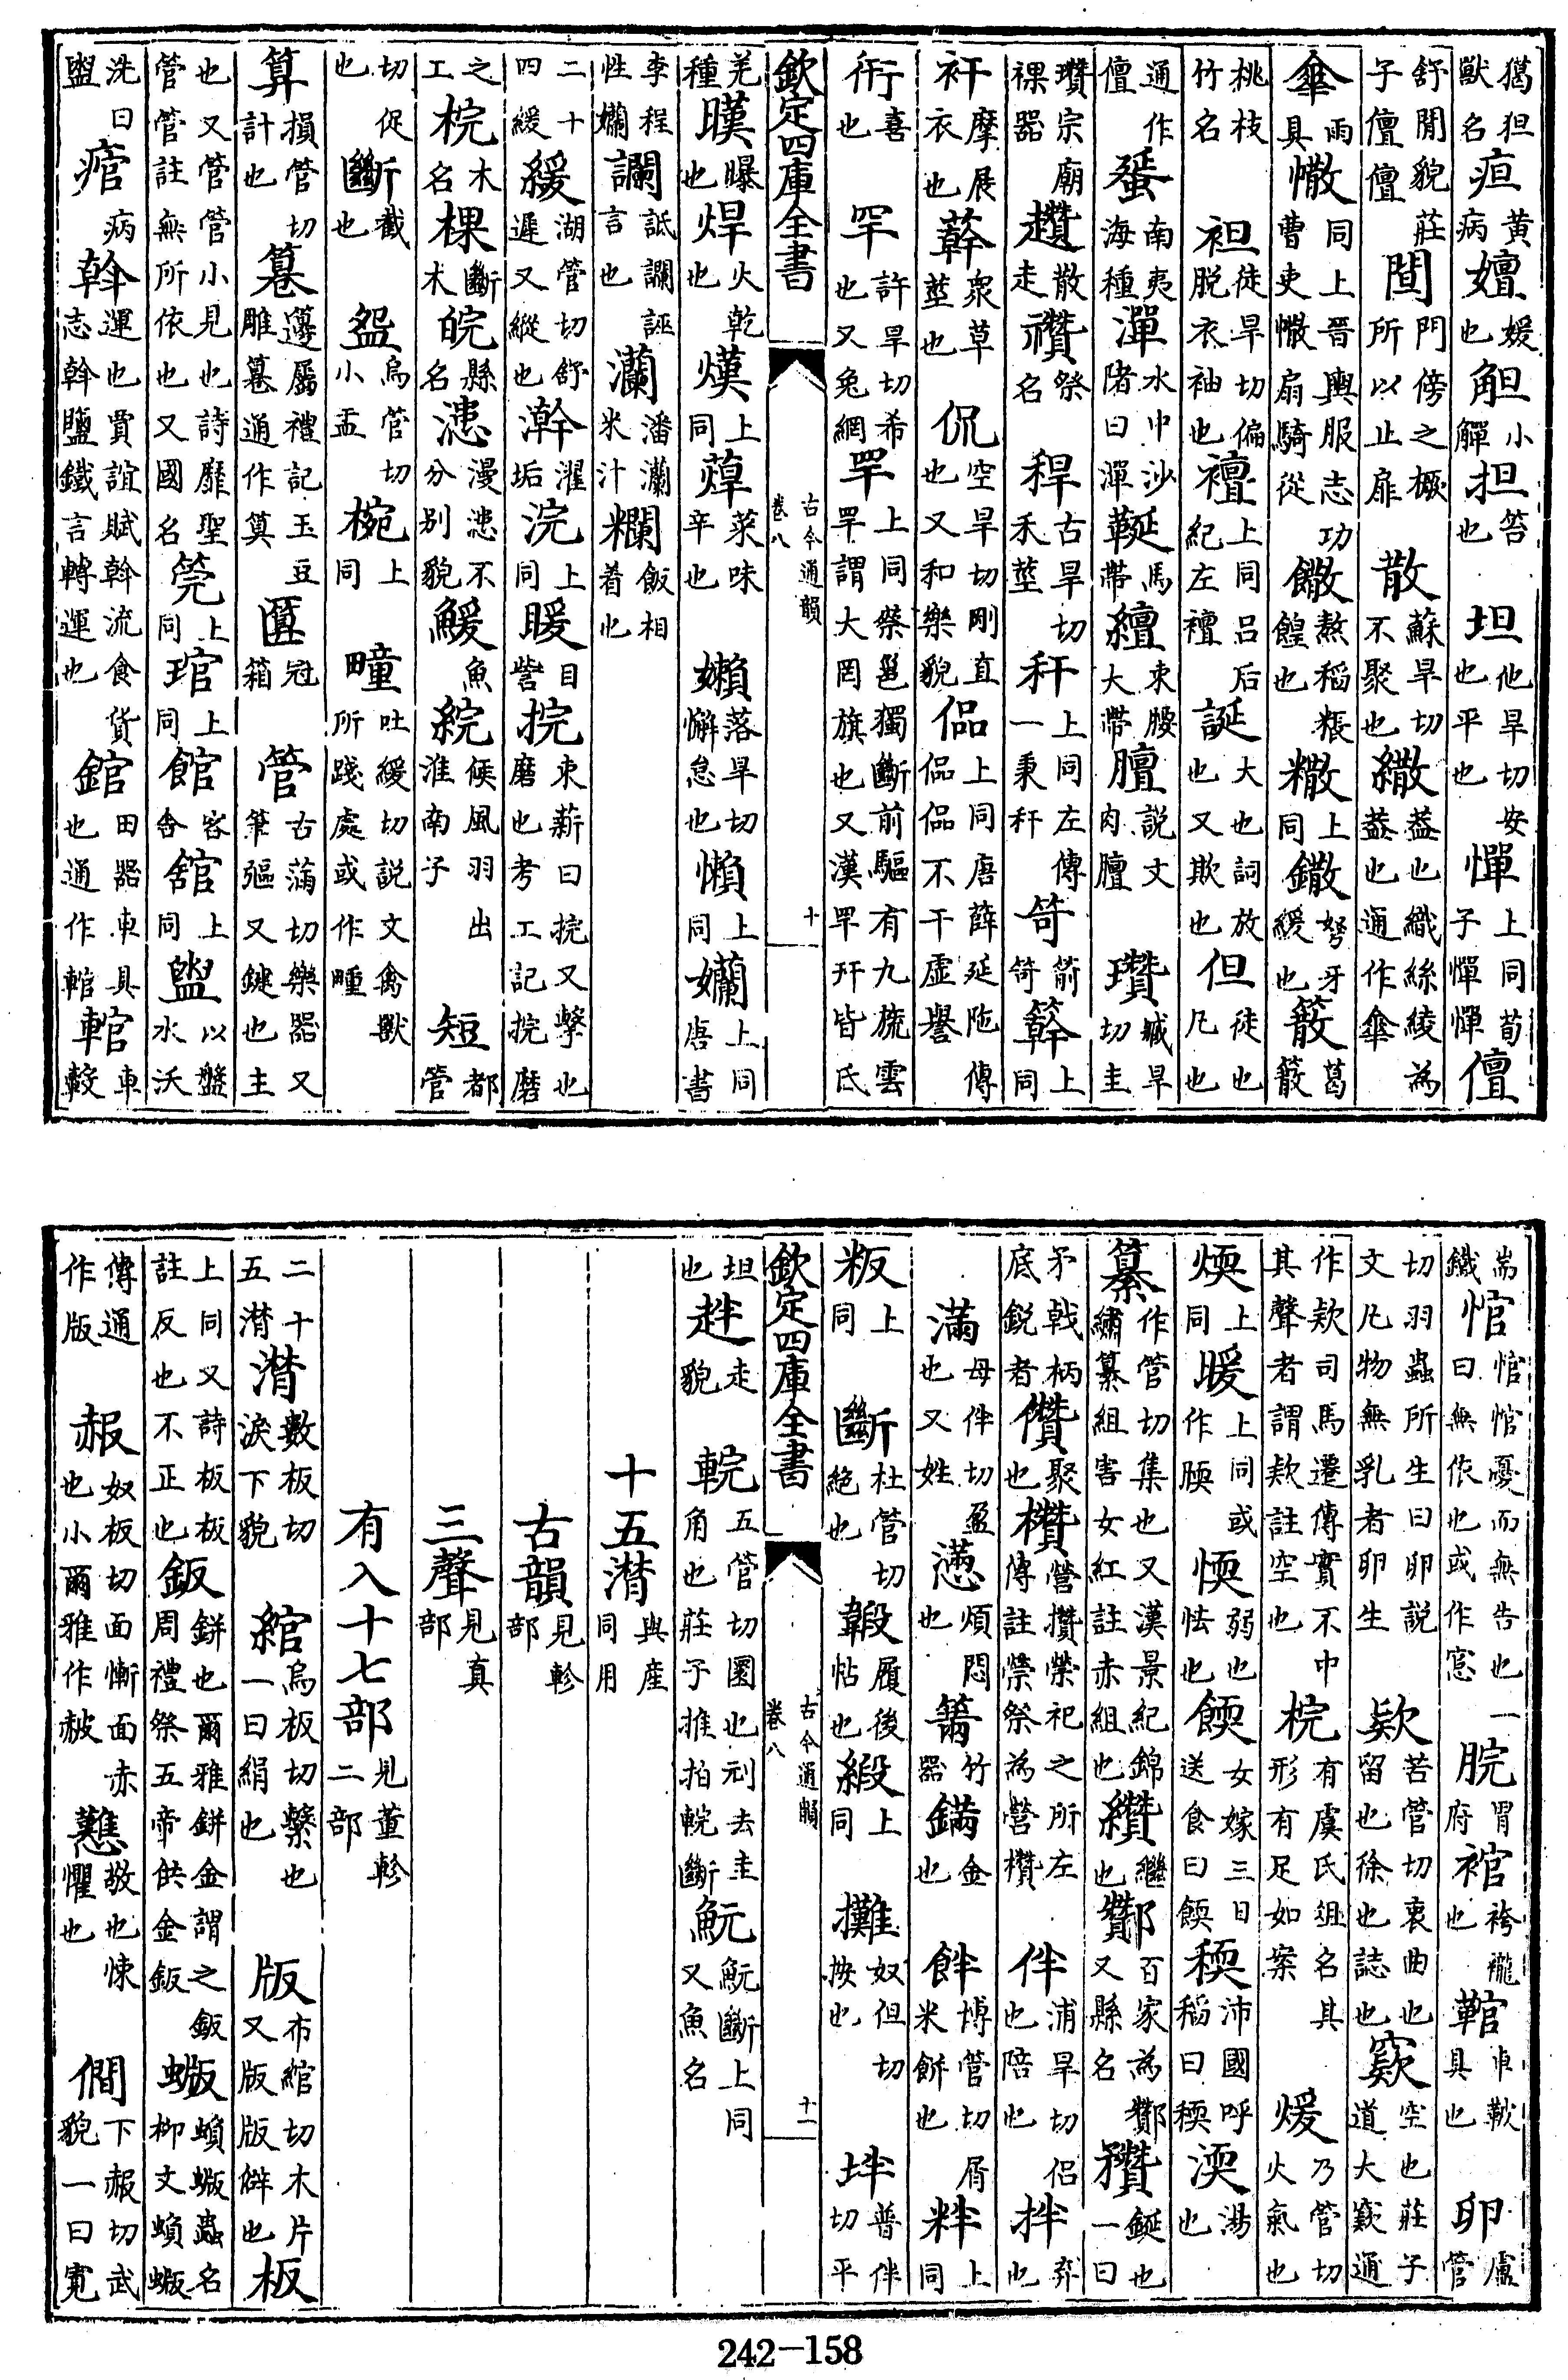 獦狚獸名疸黃病嬗媛也觛小觶担笞也坦他旱切安也平也憚上同荀子憚憚儃
舒閒貌莊子儃儃閏門傍之橛所以止扉散蘇旱切不聚也繖蓋也織絲綾為蓋也通作傘
傘雨具幰同上晉輿服志功曹吏幰扇騎從饊熬稻粻餭也糤上同鏾弩牙緩也䉈葛䉈
桃枝竹名袒徒旱切偏脫衣袖也襢上同吕后紀左襢誕大也詞放也又欺也但徒也凡也
通作儃蜑南夷海種潬水中沙堵曰潬䩥馬帶繵束腰大帶膻說文肉膻瓚臧旱切圭
瓚宗廟祼器趲散走禶祭名稈古旱切禾莖秆上同左傳一秉秆笴箭笴簳上同
衦摩展衣也䕎眾草莖也侃空旱切剛直也又和樂貌偘上同唐薛延陁傳偘偘不干虛譽
衎喜也罕許旱切希也又兔網罕上同蔡邕獨斷前驅有九斿雲罕謂大罔旗也又漢罕幵皆氐
欽定四庫全書 古今通韻 卷八 十
羌種暵曝也焊火乾也熯上同蔊菜味辛也嬾落旱切懈怠也懶上同孄上同唐書
李程性孄讕詆讕誣言也瀾潘瀾米汁糷飯相着也
二十四緩緩湖管切舒遲又縱也澣濯垢浣上同睆目睯捖束薪曰捖又擊也磨也考工記捖磨
之工梡木名棵斷木皖縣名漶漫漶不分别貌鯇魚綄候風羽出淮南子短都管
切促也斷截也盌烏管切小盂椀上同疃吐緩切說文禽獸所踐處或作畽
算損管切計也篹籩屬禮記玉豆雕篹通作筭匴冠箱管古滿切樂器又筆彄又鍵也主
也又管管小見也詩靡聖管管註無所依也又國名筦上同琯上同館客舍舘上同盥以盤水沃
洗曰盥痯病斡運也賈誼賦斡流食貨志斡鹽鐵言轉運也錧田器車具也通作輨輨車轂
耑鐵悹悹悹憂而無告也一曰無依也或作窓脘胃府䘾袴襱也鞟車鞁具也卵盧管
切羽蟲所生曰卵說文凡物無乳者卵生款苦管切衷曲也留也徐也誌也窾空也莊子道大窾通
作款司馬遷傳實不中其聲者謂款註空也梡有虞氏俎名其形有足如案煖乃管切火氣也
煗上同暖上同或作㬉愞弱也怯也餪女嫁三日送食曰餪稬沛國呼稻曰稬渜湯也
纂作管切集也又漢景紀錦繡纂組害女紅註赤組也纘繼也酇百家為酇又縣名穳鋋也一曰
矛戟柄底銳者儹聚也欑營攅禜祀之所左傳註禜祭為營欑伴浦旱切侣也陪也拌弃也
滿母伴切盈也又姓懣煩悶也䉟竹器鏋金也䬳博管切屑米餅也粄上同
粄上同斷杜管切絶也䩔履後帖也緞上同攤奴但切按也坢普伴切平
欽定四庫全書 古今通韻 卷八 十一
坦也赸走貌輐五管切圜也刓去圭角也莊子推拍輐斷魭魭斷上同又魚名
十五潸與產同用
古韻見軫部
三聲見真部
有入十七部見董軫二部
二十五潸潸數板切淚下貌綰烏板切繫也一曰絹也版布綰切木片又版版僻也板
上同又詩板板註反也不正也鈑鉼也爾雅鉼金謂之鈑周禮祭五帝供金鈑蝂蝜蝂蟲名柳文蝜蝂
傳通作版赧奴板切面慚面赤也小爾雅作赦戁敬也悚懼也僩下赧切武貌一曰寬
242-158